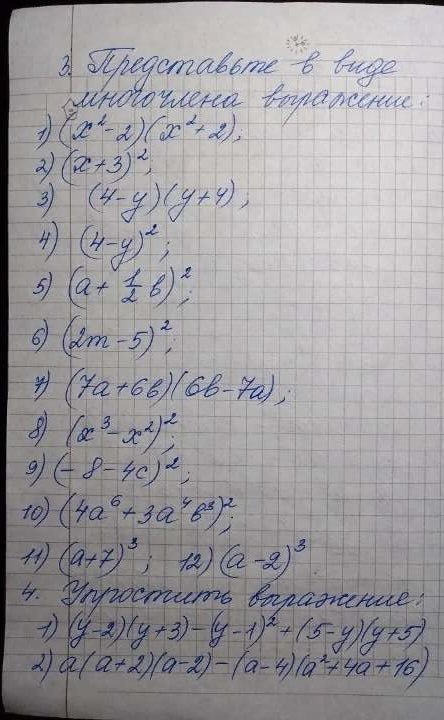 3. Представьте в виде
многочлена выражение:
1) (x²-2)(x²+2);
2) (x+3)²;
3) (4-y)(y+4);
4) (4-y)²;
5) (a+ 1/2 b)²;
6) (2m-5)²;
7) (7a+6b)(6b-7a);
8) (x³-x²)²;
9) (-8-4c)²;
10) (4a⁶+3a⁴b³)²;
11) (a+7)³; 12) (a-2)³
4. Упростить выражение:
1) (y-2)(y+3)-(y-1)²+(5-y)(y+5)
2) a(a+2)(a-2)-(a-4)(a²+4a+16)